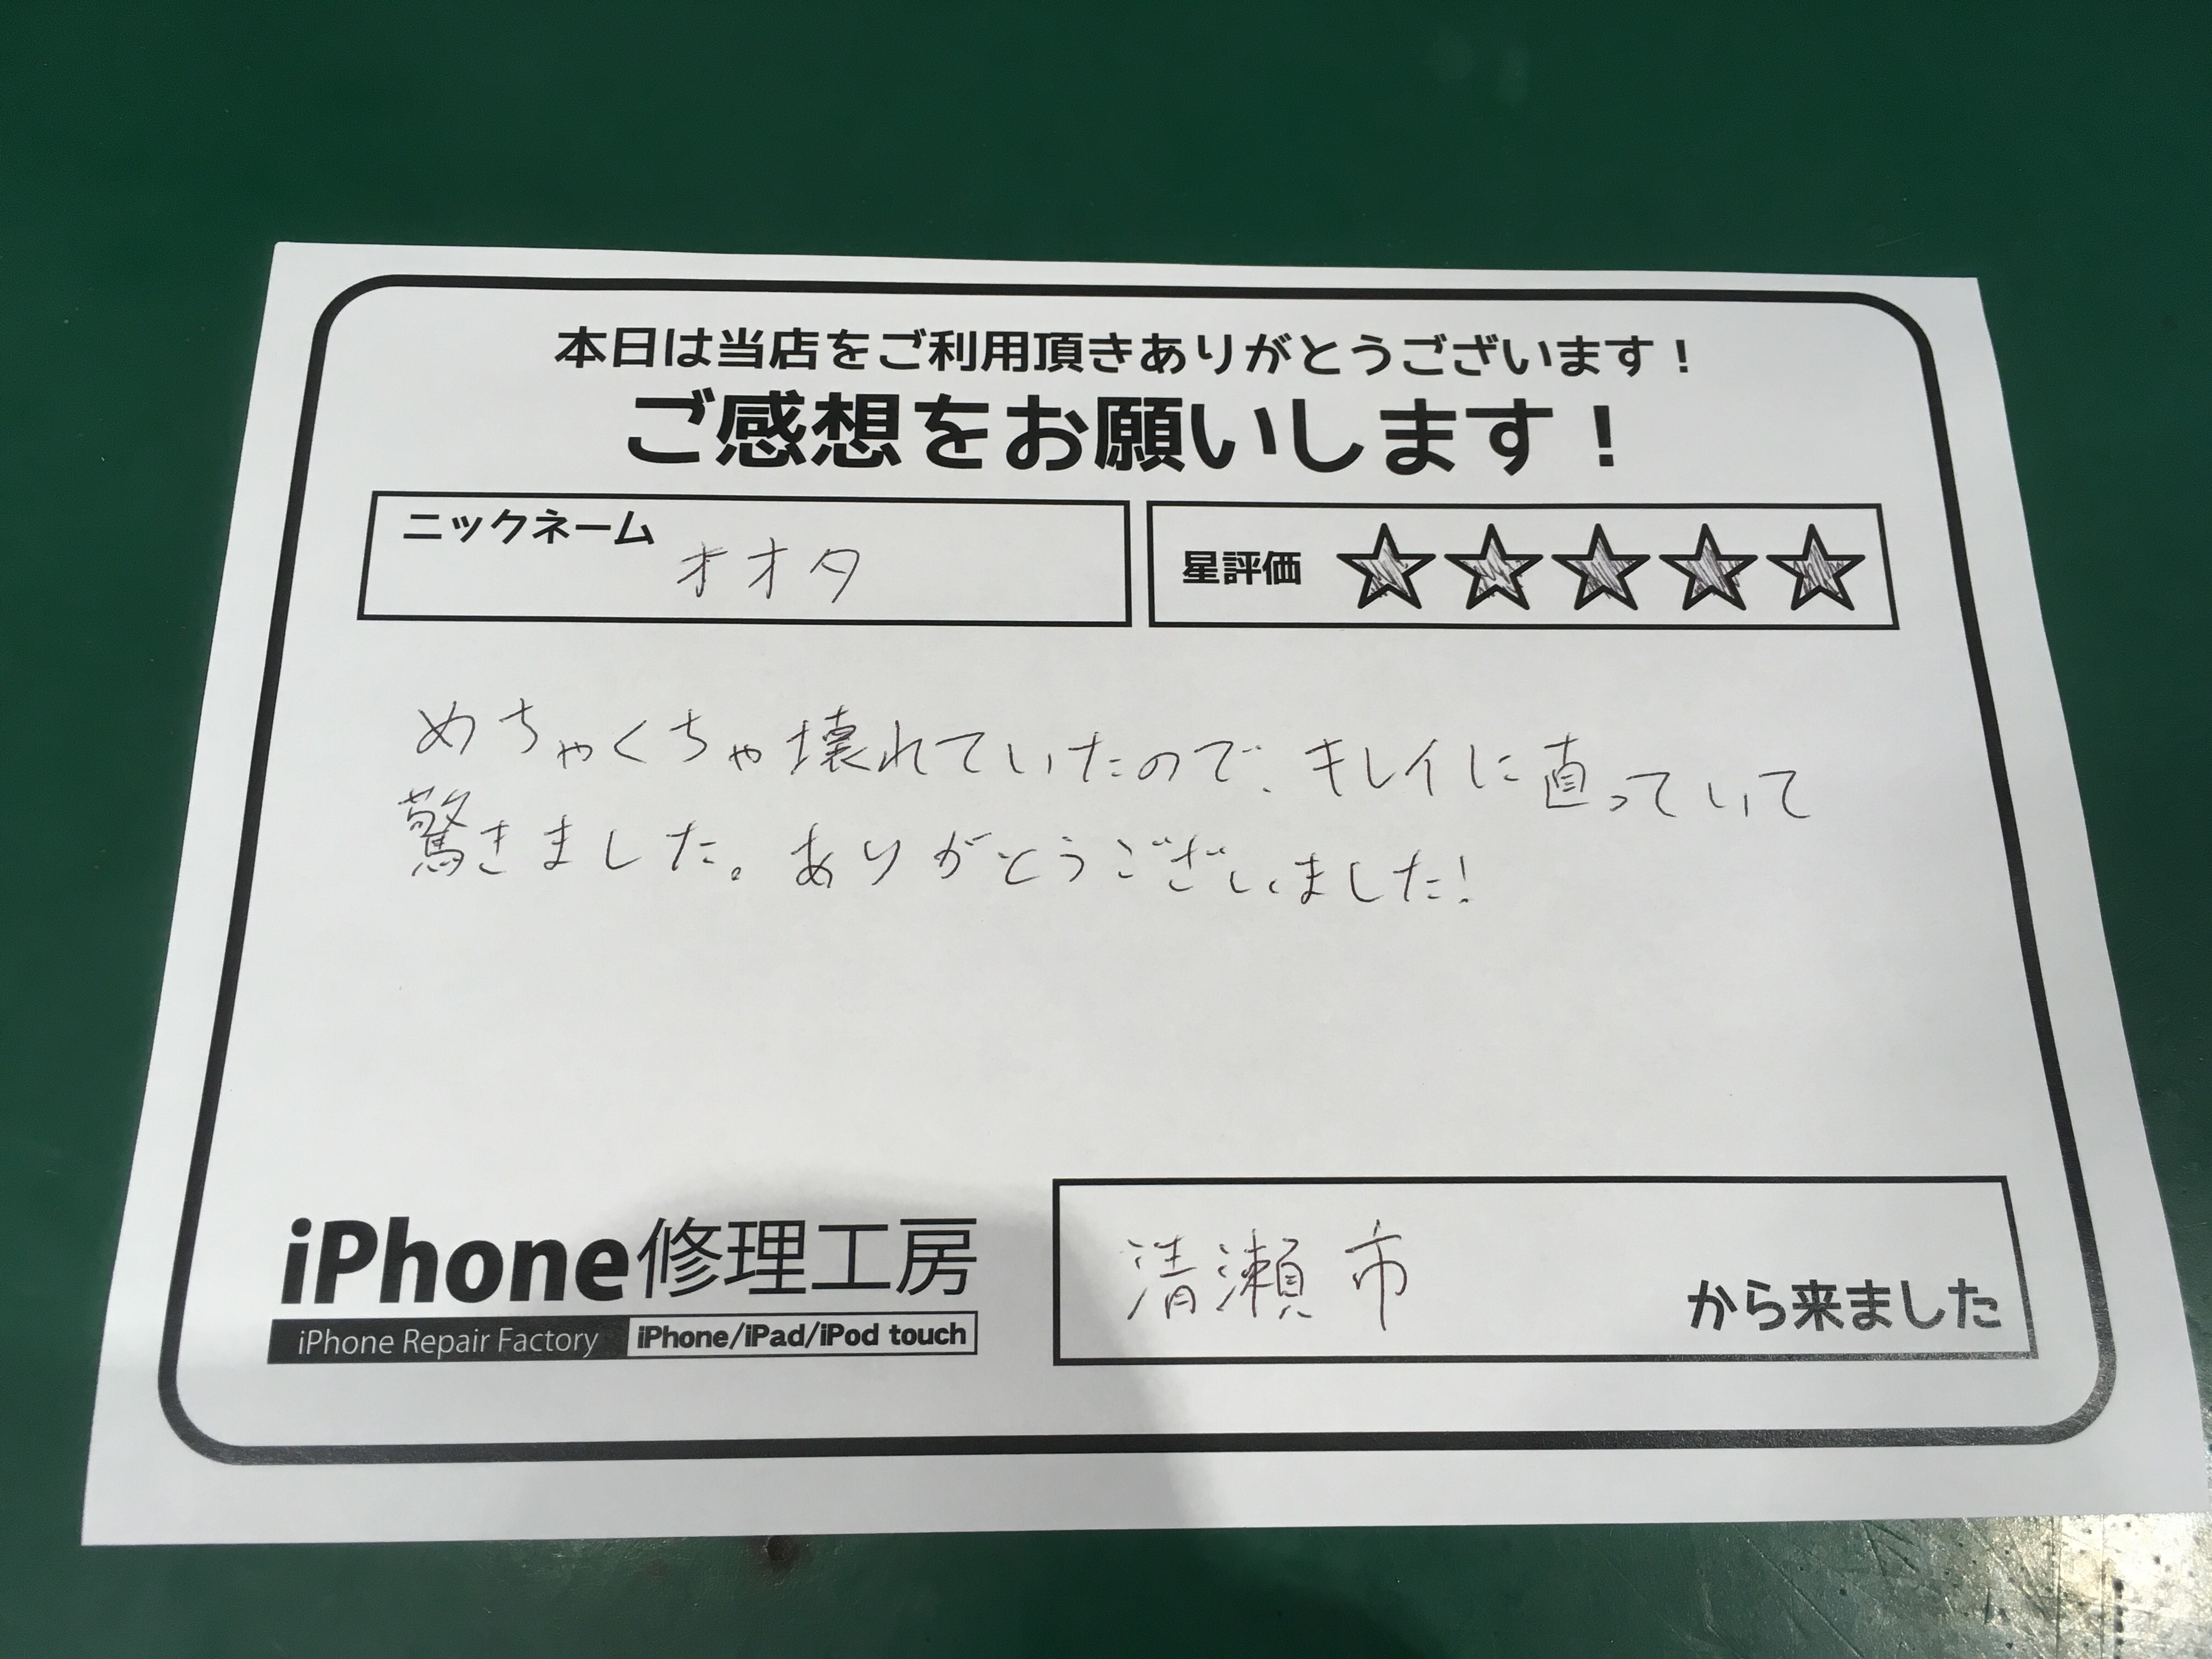 本日は当店をご利用頂きありがとうございます！
ご感想をお願いします！
ニックネーム オオタ
星評価 ☆☆☆☆☆
めちゃくちゃ壊れていたので、キレイに直っていて
驚きました。ありがとうございました！
iPhone修理工房
iPhone Repair Factory iPhone/iPad/iPod touch
清瀬市 から来ました